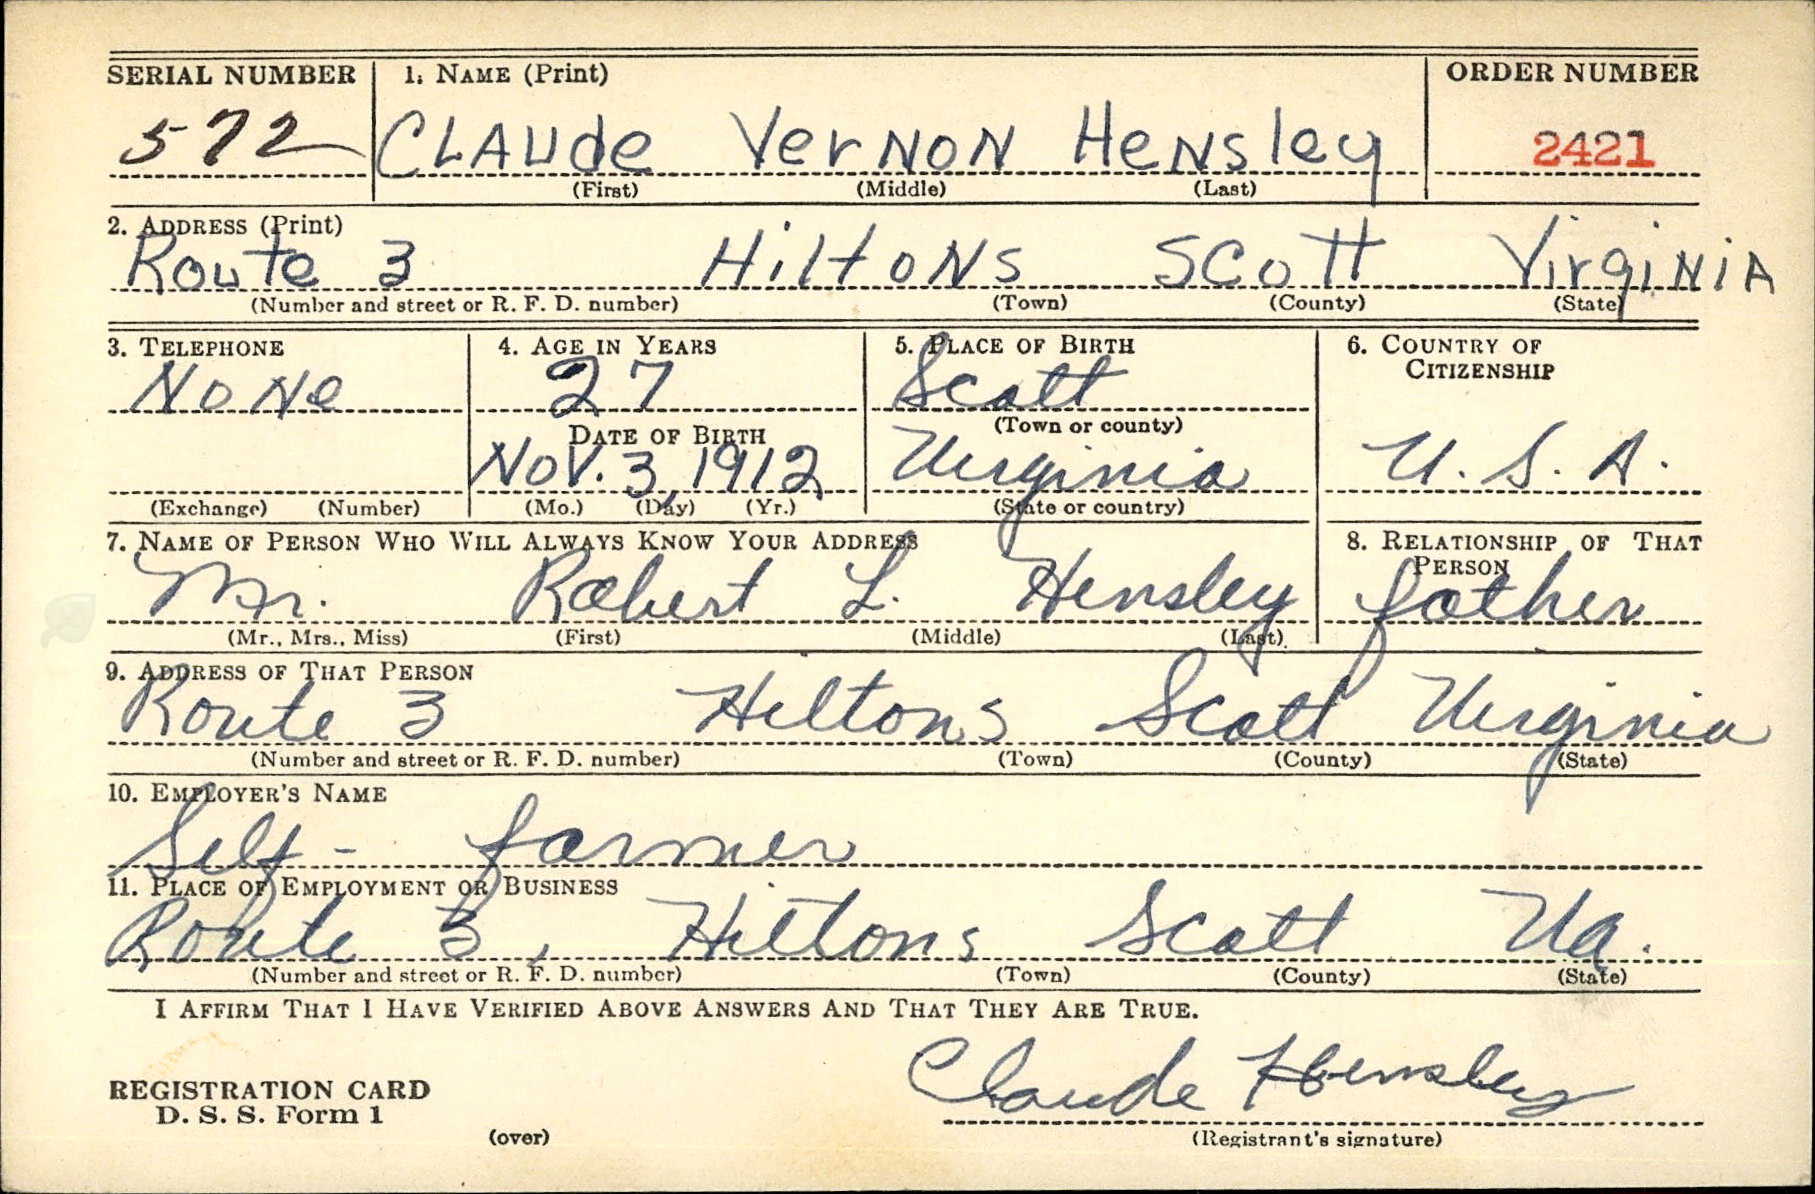 SERIAL NUMBER 1. NAME (Print) ORDER NUMBER
572 CLAUde VerNON HeNsley 2421
(First) (Middle) (Last)
2. ADDRESS (Print)
Route 3 HiltoNs Scott VirgiNiA
(Number and street or R. F. D. number) (Town) (County) (State)
3. TELEPHONE 4. AGE IN YEARS 5. PLACE OF BIRTH 6. COUNTRY OF
CITIZENSHIP
NoNe 27 Scott
DATE OF BIRTH (Town or county)
Nov. 3, 1912 Virginia U. S. A.
(Exchange) (Number) (Mo.) (Day) (Yr.) (State or country)
7. NAME OF PERSON WHO WILL ALWAYS KNOW YOUR ADDRESS 8. RELATIONSHIP OF THAT
PERSON
Mr. Robert L. Hensley father
(Mr., Mrs., Miss) (First) (Middle) (Last)
9. ADDRESS OF THAT PERSON
Route 3 Hiltons Scott Virginia
(Number and street or R. F. D. number) (Town) (County) (State)
10. EMPLOYER'S NAME
Self - farmer
11. PLACE OF EMPLOYMENT OR BUSINESS
Route 3, Hiltons Scott Va.
(Number and street or R. F. D. number) (Town) (County) (State)
I AFFIRM THAT I HAVE VERIFIED ABOVE ANSWERS AND THAT THEY ARE TRUE.
Claude Hensley
REGISTRATION CARD
D. S. S. Form 1
(over) (Registrant's signature)